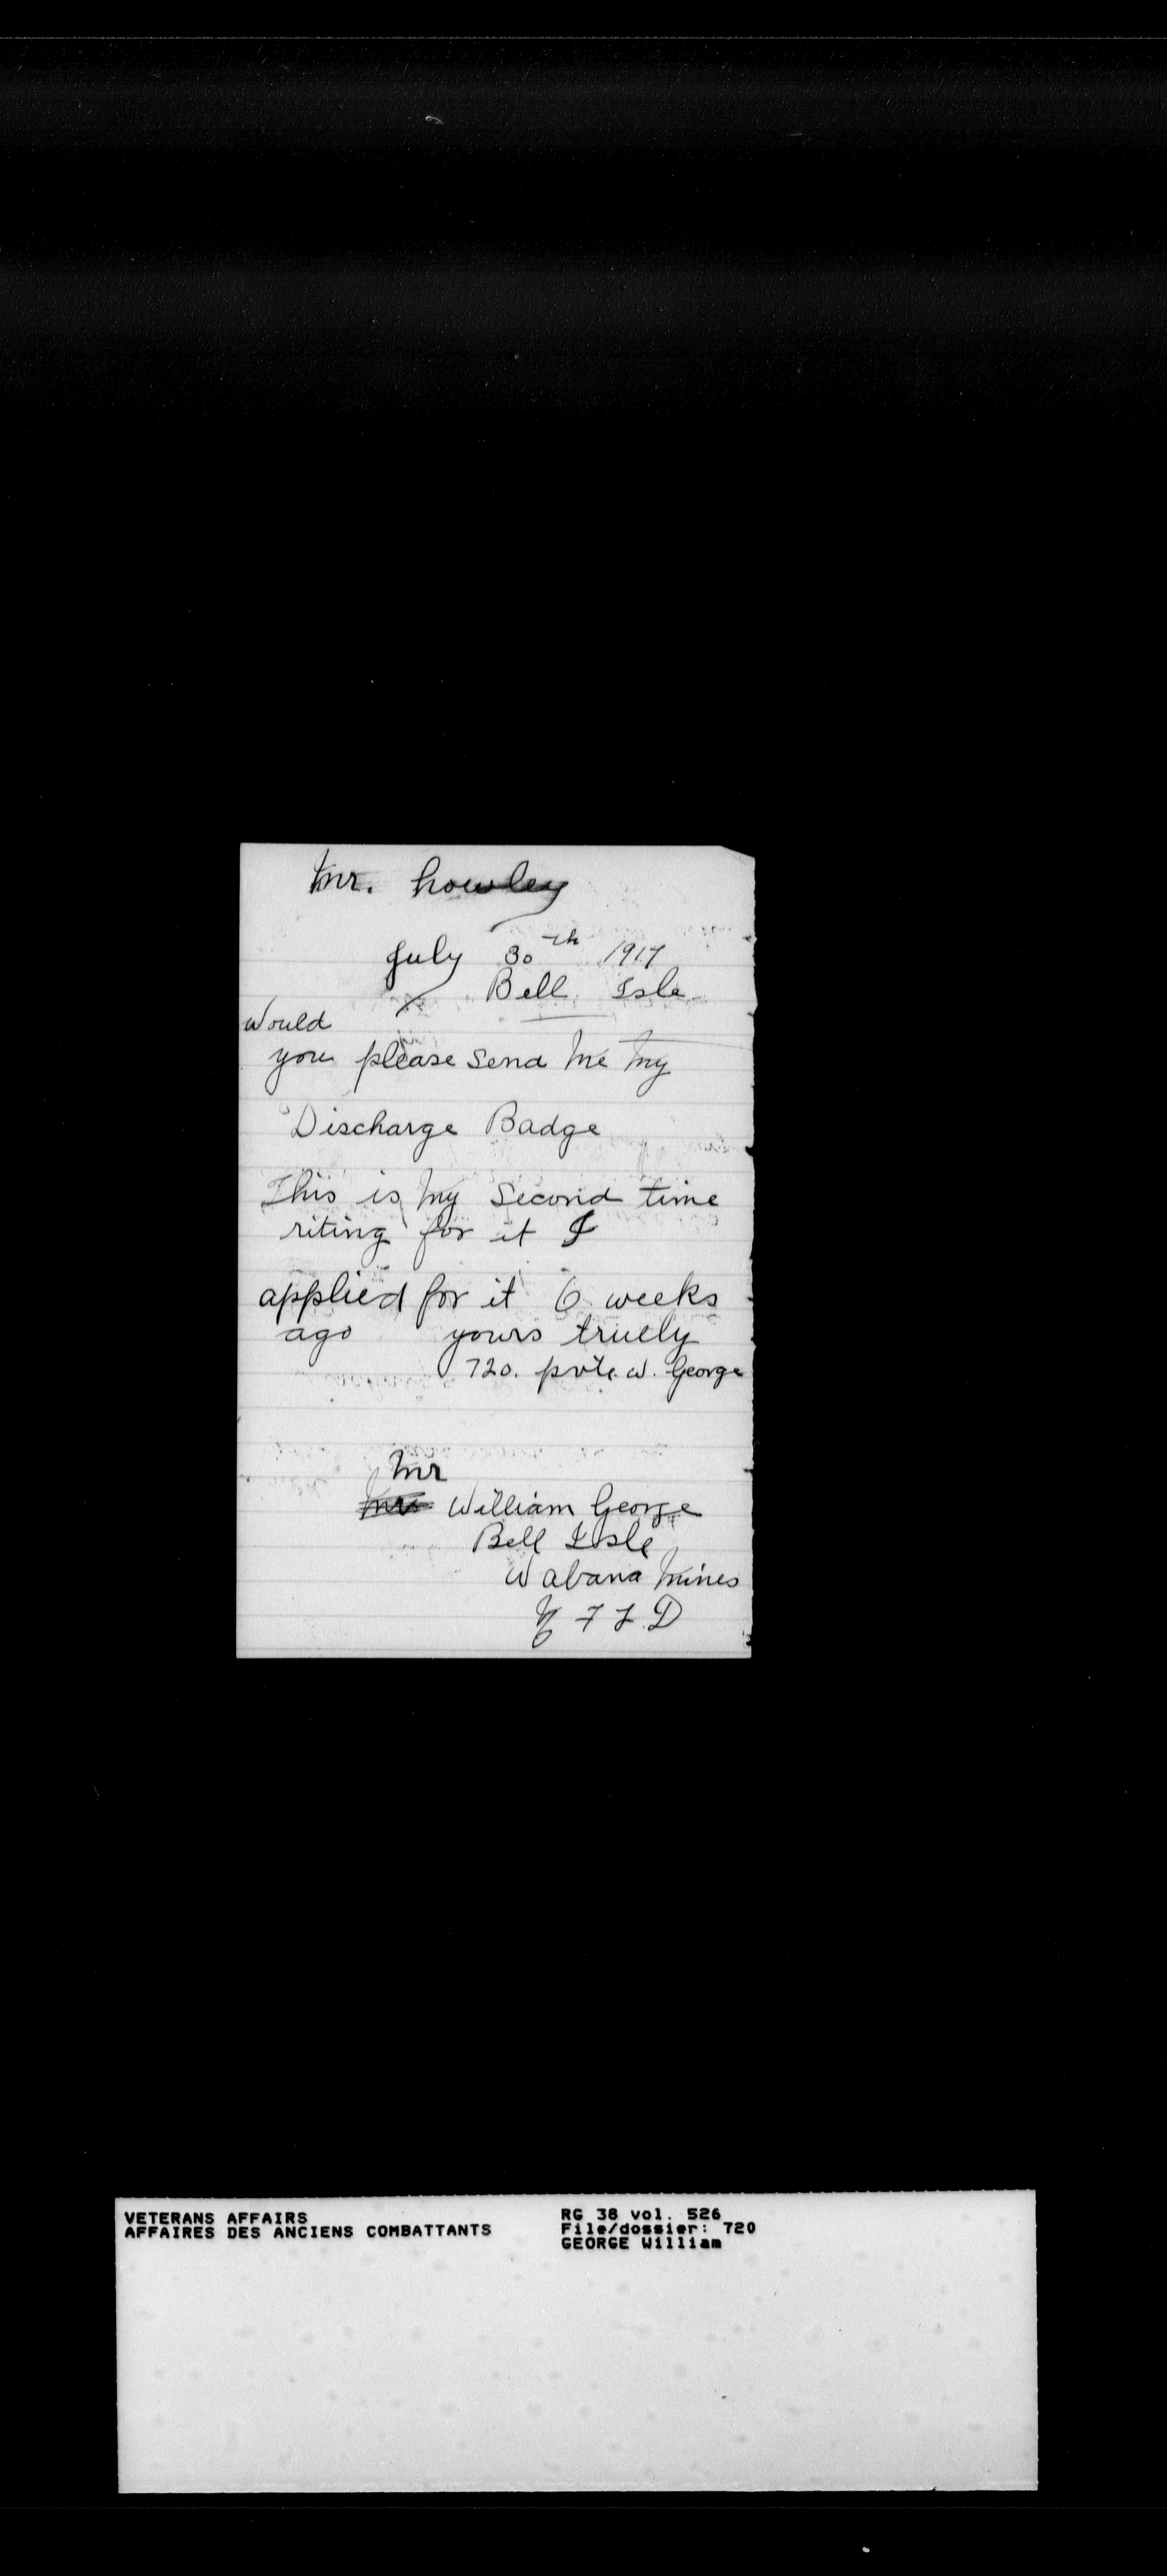 Mr. howley
July 30th 1917
Bell Isle
Would
you please send me my
Discharge Badge
This is my second time
riting for it I
applied for it 6 weeks
ago yours truely
720. pvte. W. George
Mr
Mrs William George
Bell Isle
Wabana Mines
N F L D
VETERANS AFFAIRS
AFFAIRES DES ANCIENS COMBATTANTS
RG 38 vol. 526
File/dossier: 720
GEORGE William